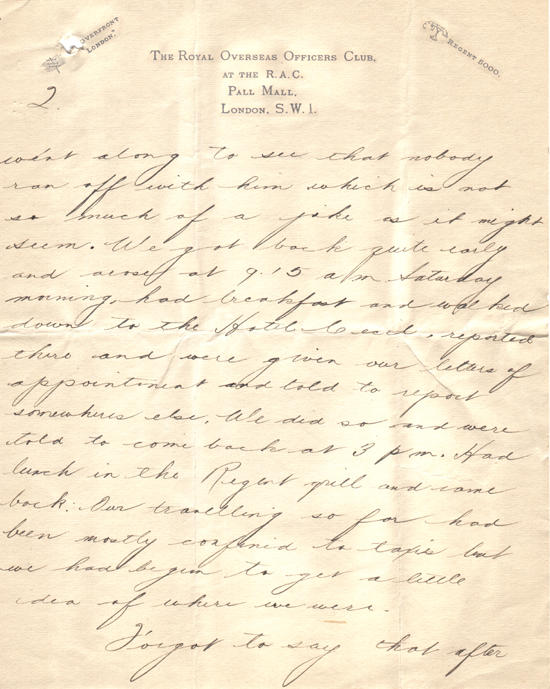 OVERFRONT
LONDON."
REGENT 5000.
THE ROYAL OVERSEAS OFFICERS CLUB,
AT THE R.A.C.
PALL MALL,
LONDON, S.W.1.
2.
went along to see that nobody
ran off with him which is not
so much of a joke as it might
seem. We got back quite early
and arose at 9.15 a/m Saturday
morning, had breakfast and walked
down to the Hotel Cecil, reported
there and were given our letters of
appointment and told to report
somewheres else. We did so and were
told to come back at 3 p m. Had
lunch in the Regent grill and came
back. Our travelling so far had
been mostly confined to taxis but
we had begun to get a little
idea of where we were.
Forgot to say that after